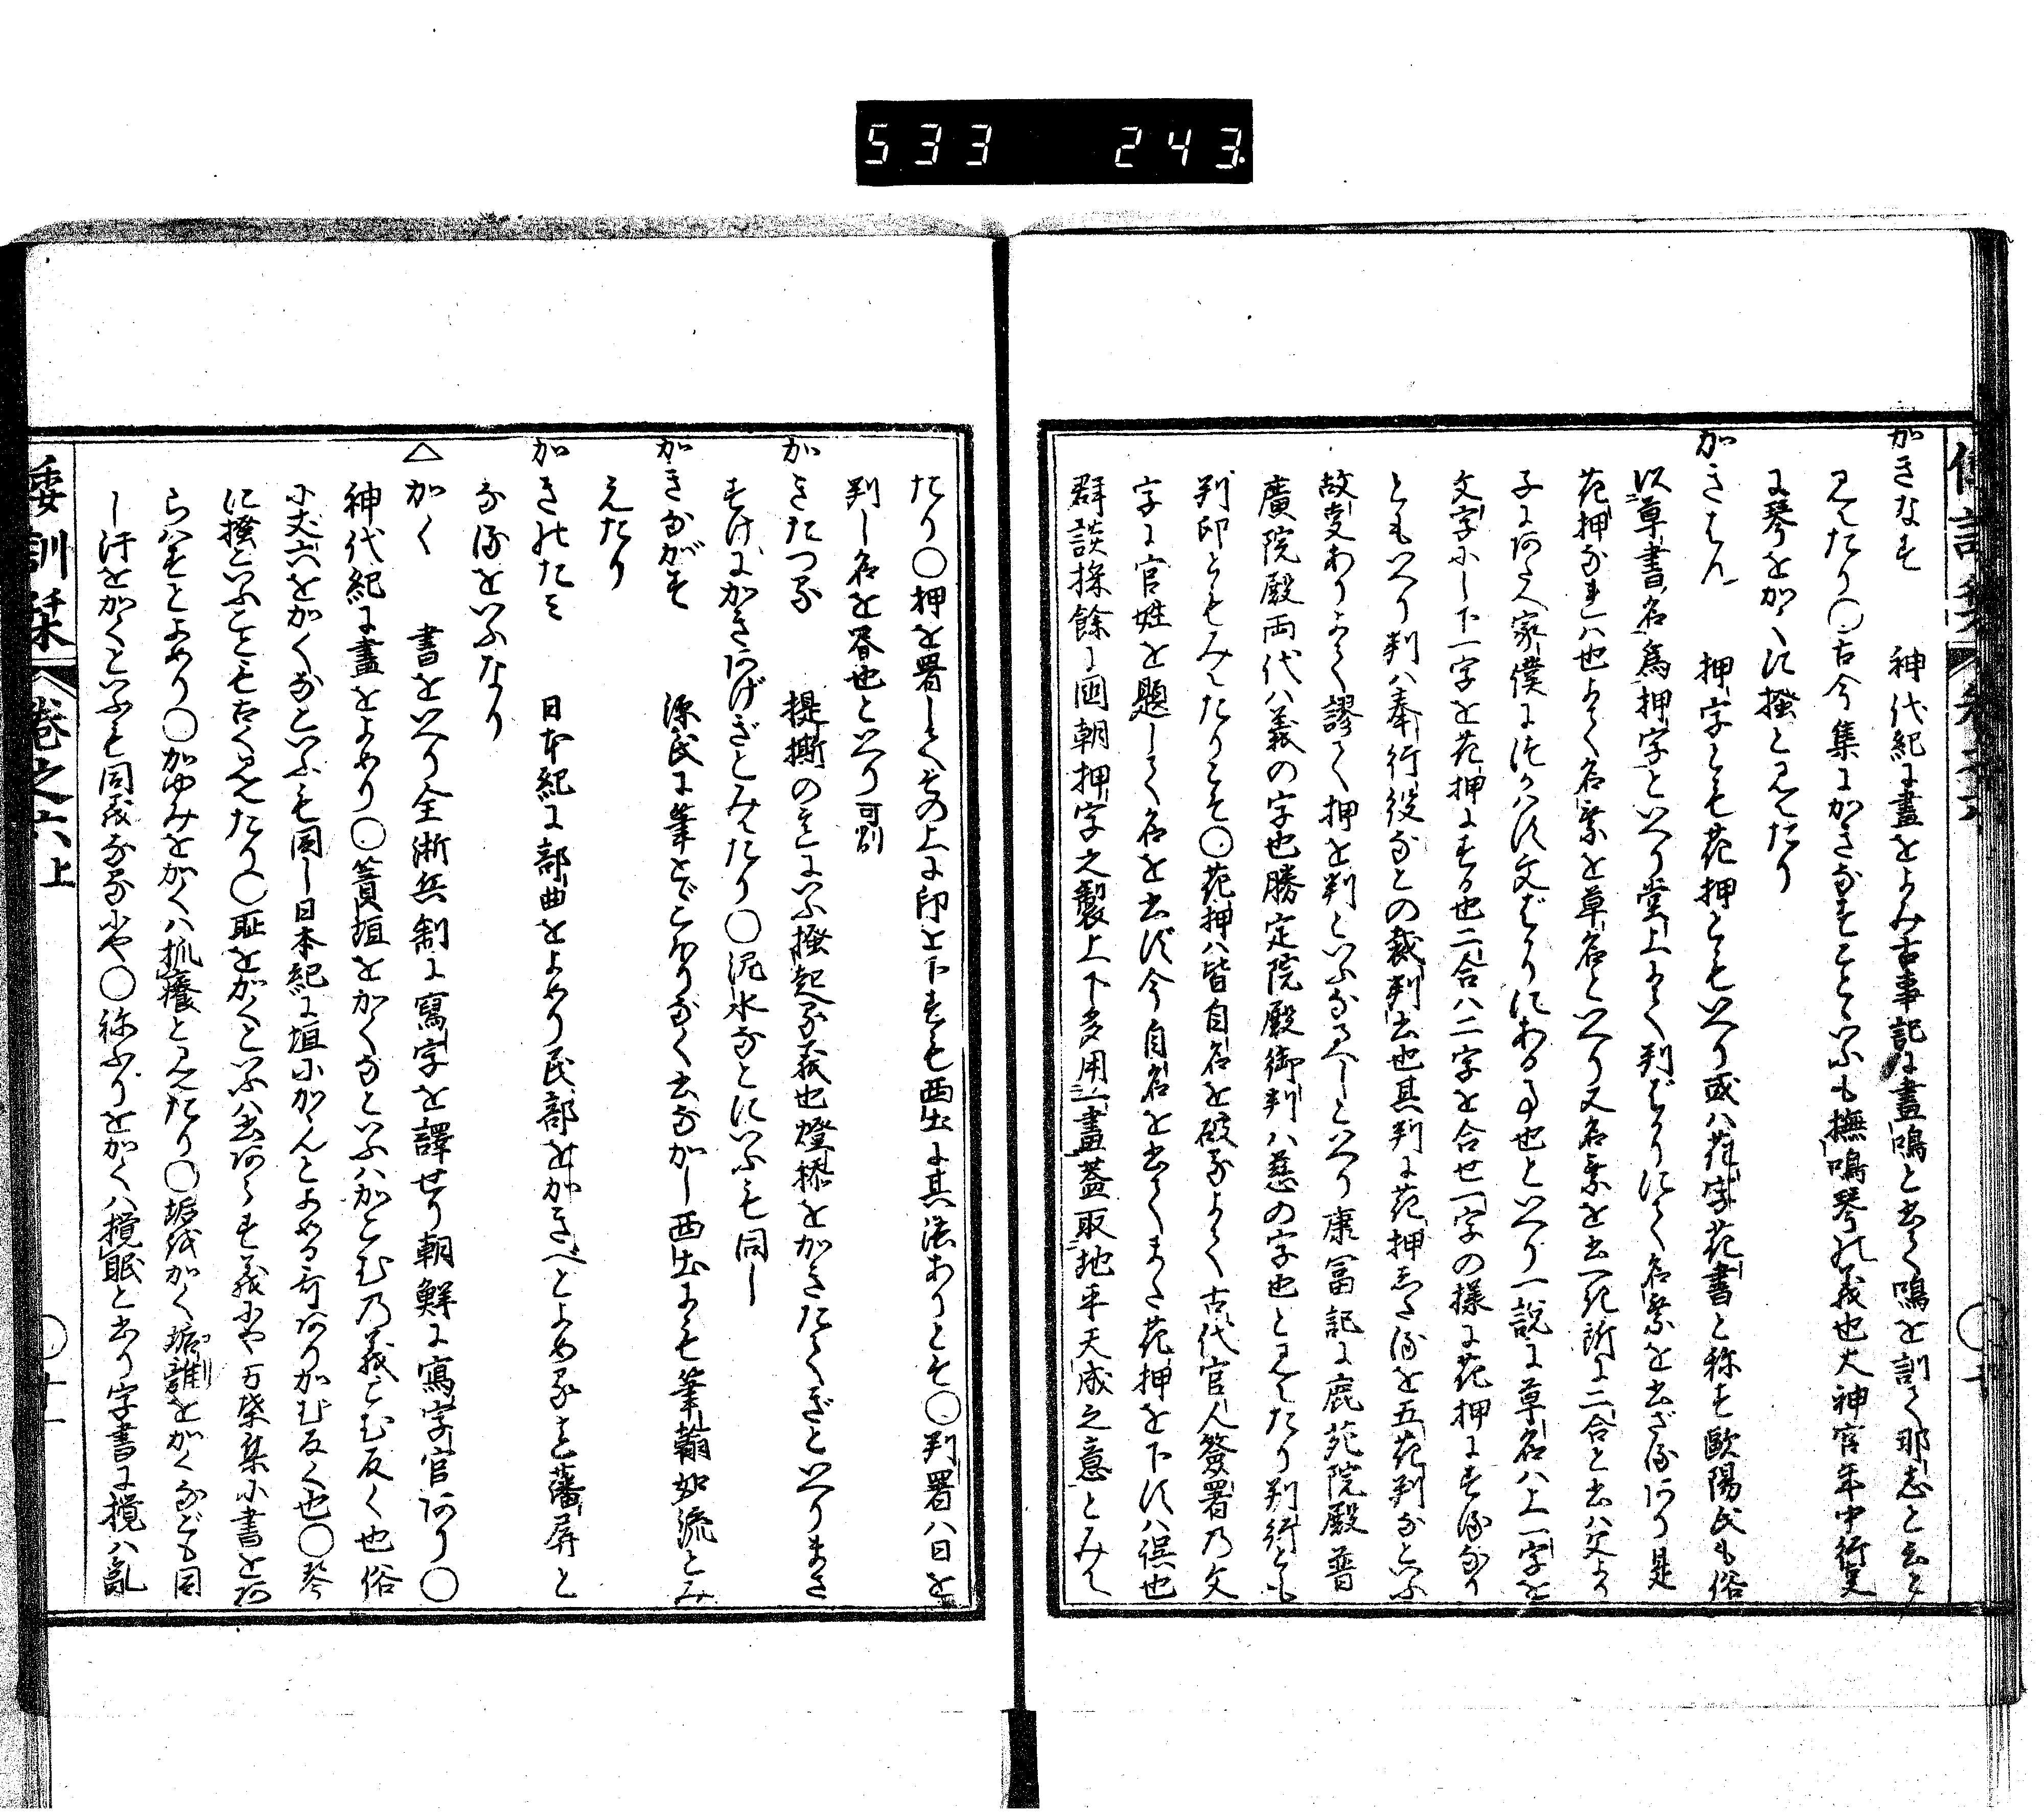 533 243
かきなす 神代紀に畫をよみ古事記に畫鳴と書て鳴を訓て那志と云と
見えたり〇古今集にかきなすことといふも撫鳴琴の義也大神宮年中行事
に琴をかくに搔と見えたり
かきはん 押字とも花押ともいへり或ハ花字花書と称す歐陽氏も俗
以草書名爲押字といへり堂上にて判ばかりにて名乗を書ざるあり是
花押なれハ也よて名乗を草名といへり又名乗を書一所に二合と書ハ父より
子にあたへ家僕につかハす文ばかりにある事也といへり一説に草名ハ上一字を
文字にし下一字を花押にする也二合ハ二字を合せ一字の様に花押にするなり
ともいへり判ハ奉行役などの裁判書也其判に花押したるを五花判などいふ
故支ありよて謬て押を判といふなるへしといへり康冨記に鹿苑院殿普
廣院殿両代ハ義の字也勝定院殿御判ハ慈の字也と見えたり判行とも
判印ともみえたりとそ〇花押ハ皆自名を破るよて古代官人簽署乃文
字に官姓を題して名を書ず今自名を書てまた花押を下すハ誤也
群談採餘に囸朝押字之製上下多用一畫蓋取地平天成之意とみえ
たり〇押を署してその上に印上下すも西土に其法ありとそ〇判署ハ日を
判し名を署也といへり可別
かきたつる 提撕の意にいふ搔起る義也燈挑をかきたてぎといへりまさ
すけにかきあげぎとみえたり〇泥水などにいふも同し
かきながす 源氏に筆とどこほりなく書ながし西土にも筆翰如流とみ
えたり
かきのたミ 日本紀に部曲をよめり民部をかきべとよめるも藩屏と
なるをいふなり
△かく 書をいへり全浙兵制に寫字を譯せり朝鮮に寫字官あり〇
神代紀に畫をよめり〇簀垣をかくなといふハかこむ乃義こむ反く也俗
に丈六をかくなといふも同し日本紀に垣にかんとよめる哥ありかむ反く也〇琴
に搔といふことも古く見えたり〇耻をかくといふハ書あらす義にや万葉集に書をあ
らハすとよめり〇かゆみをかくハ抓癢と見えたり〇垢をかく誰をかくなども同
し汗をかくといふも同義なるにや〇祢ふりをかくハ攪眠と書り字書に攪ハ亂
倭訓栞 卷之六上 〇十一